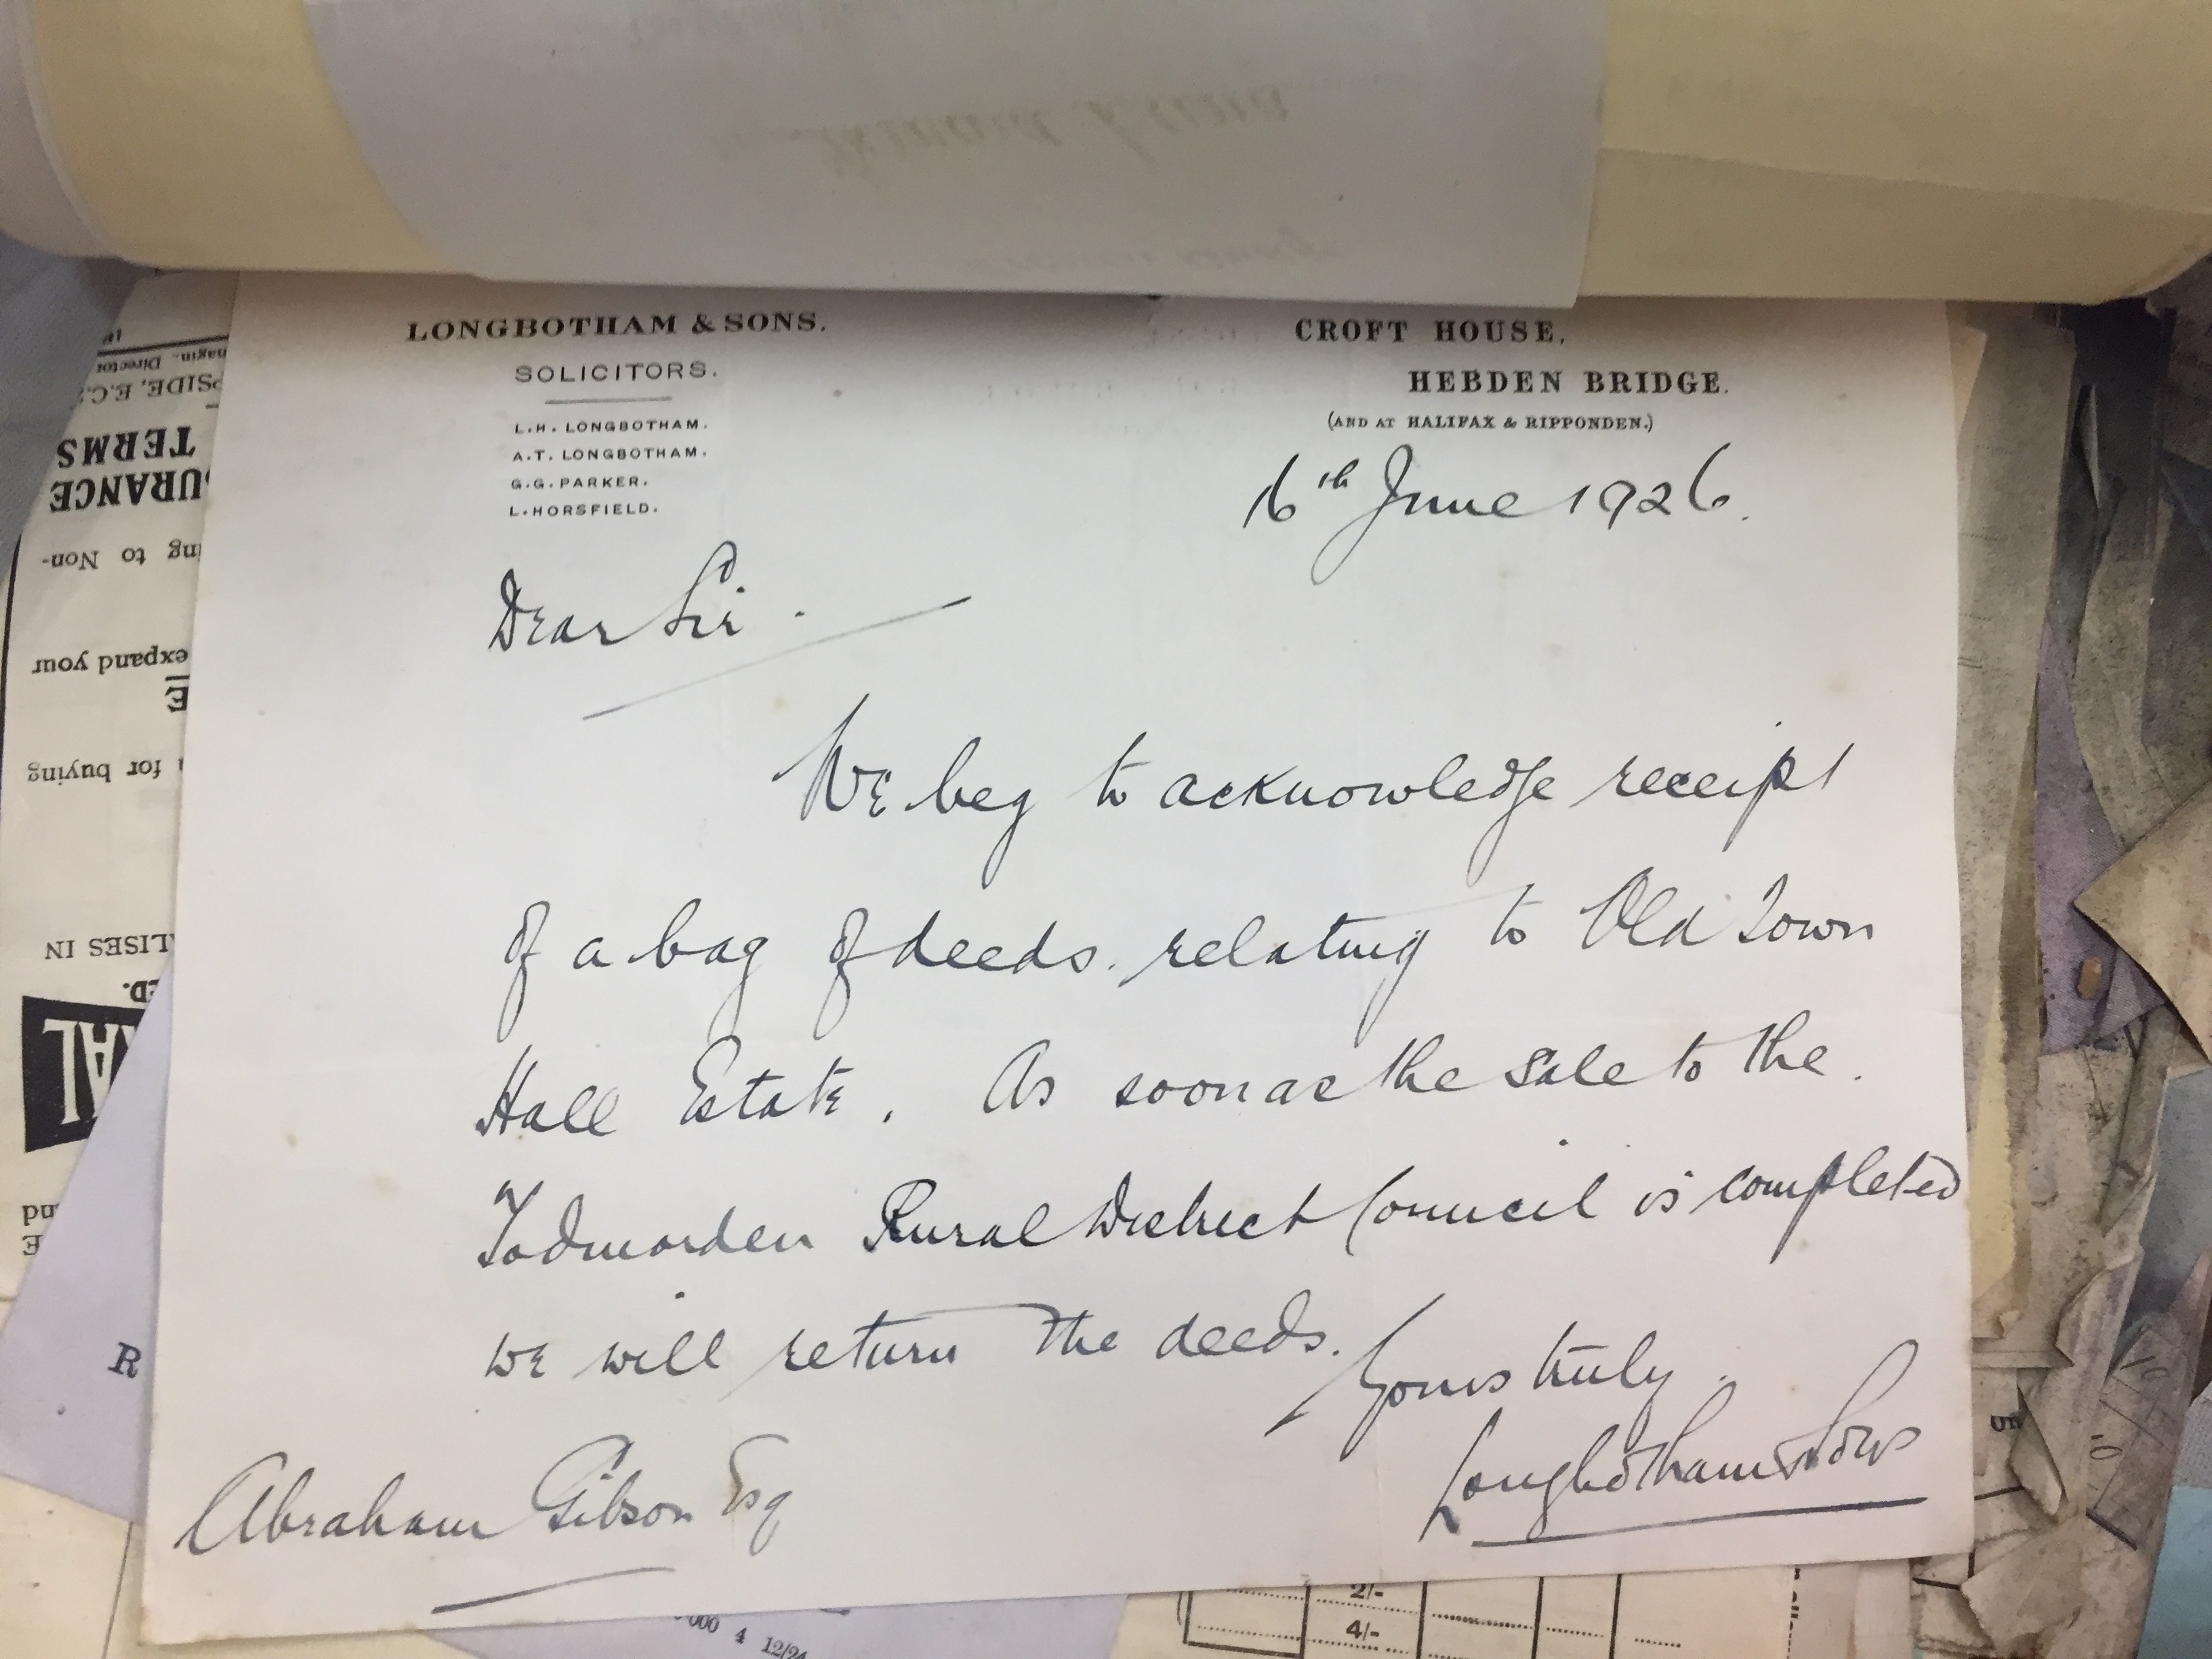 LONGBOTHAM & SONS.
SOLICITORS.
L.H. LONGBOTHAM.
A.T. LONGBOTHAM.
G.G. PARKER.
L. HORSFIELD.
CROFT HOUSE,
HEBDEN BRIDGE.
(AND AT HALIFAX & RIPPONDEN.)
16th June 1926.
Dear Sir.
We beg to acknowledge receipt
of a bag of deeds. relating to Old Town
Hall Estate. As soon as the sale to the.
Todmorden Rural District Council is completed
we will return the deeds.
Yours truly.
Longbotham & Sons
Abraham Gibson Esq
TERMS
ing to Non-
expand your
for buying
2/-
4/-
000 4 12/24
R